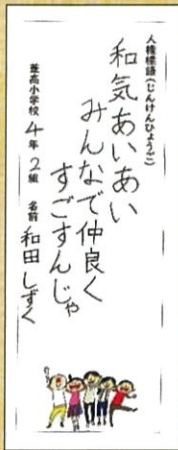 人権標語(じんけんひょうご)
和気あいあい
みんなで仲良く
すごすんじゃ
葦高小学校 4年 2組 名前 和田 しずく